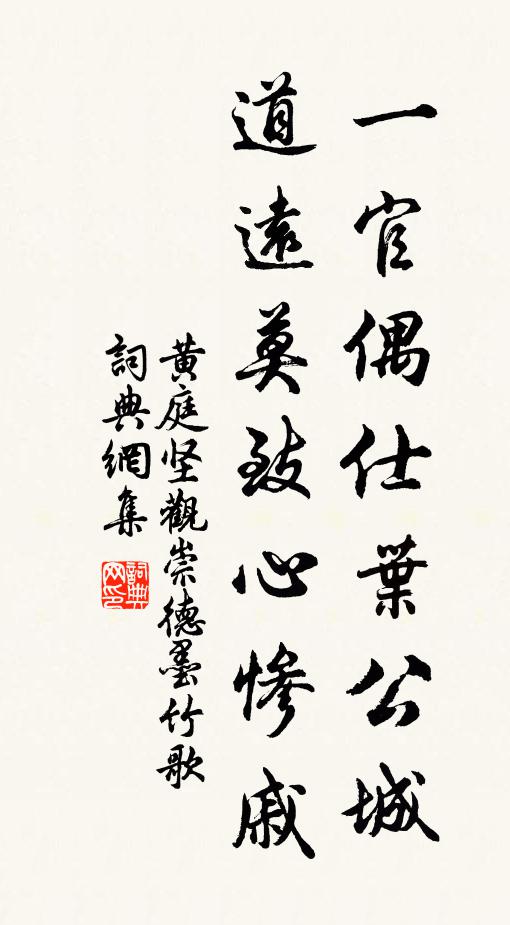 一官偶仕葉公城
道遠莫致心慘戚
黄庭坚觀崇德墨竹歌
詞典網集
詞典网印